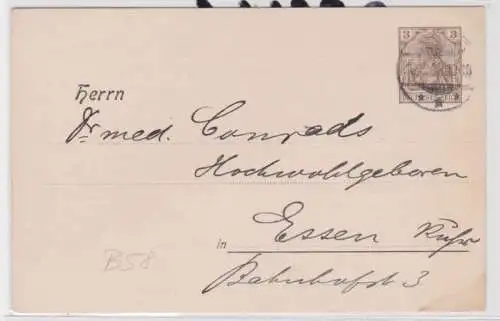 3 3
Herrn
Dr med. Conrads
Hochwohlgeboren
in Essen Ruhr
Bahnhofst 3
B58